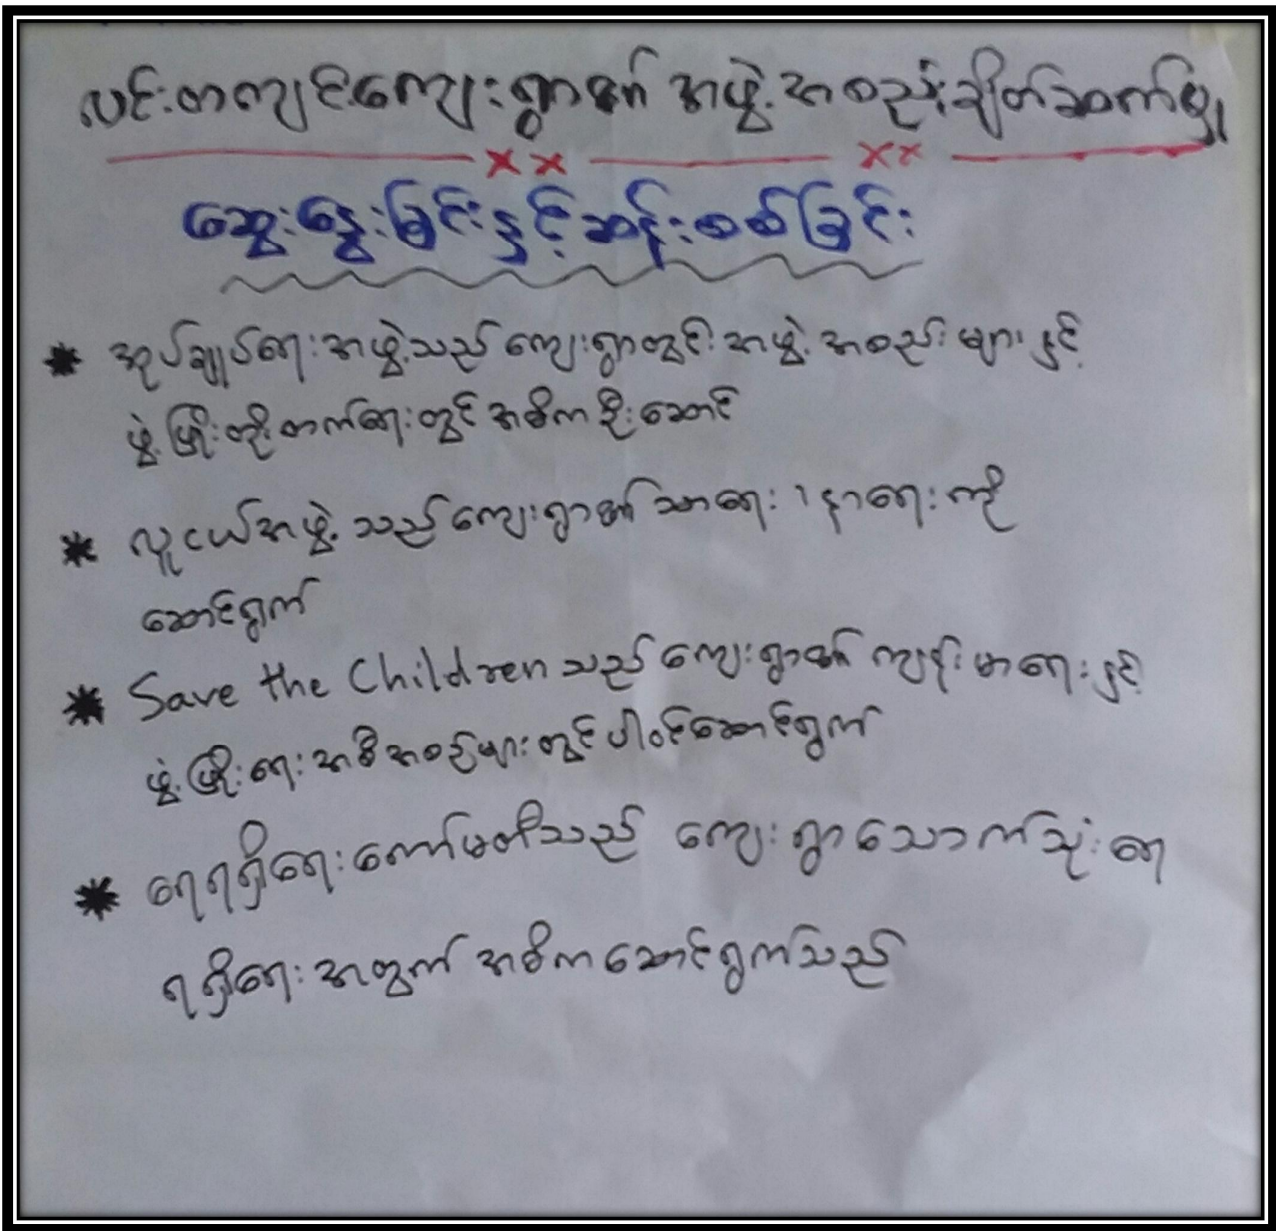 လင်းတကျင်းကျေးရွာ၏ အဖွဲ့အစည်းချိတ်ဆက်မှု
xx xx
ဆွေးနွေးခြင်းနှင့်ဆန်းစစ်ခြင်း
* အုပ်ချုပ်ရေးအဖွဲ့သည် ကျေးရွာတွင်း အဖွဲ့အစည်းများနှင့်
ဖွံ့ဖြိုးတိုးတက်ရေးတွင် အဓိကဦးဆောင်
* လူငယ်အဖွဲ့သည် ကျေးရွာ၏ သာရေး၊ နာရေးကို
ဆောင်ရွက်
* Save the Children သည် ကျေးရွာ၏ ကျန်းမာရေးနှင့်
ဖွံ့ဖြိုးရေး အစီအစဉ်များတွင် ပါဝင်ဆောင်ရွက်
* ရေရရှိရေးကော်မတီသည် ကျေးရွာသောက်သုံးရေ
ရရှိရေးအတွက် အဓိကဆောင်ရွက်သည်